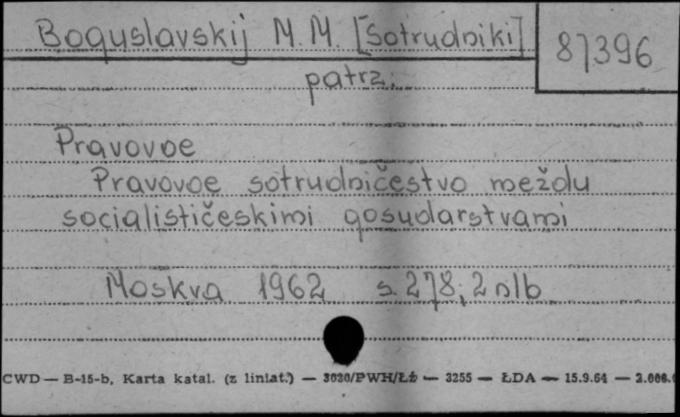 Boguslavskij M.M. [Sotrudniki]
87396
patrz:
Pravovoe
Pravovoe sotrudničestvo meždu
socialističeskimi gosudarstvami
Moskva 1962 s. 278, 2 nlb
CWD — B-15-b, Karta katal. (z liniat.) — 3030/PWH/Łź — 3255 — ŁDA — 15.9.64 — 2.000.